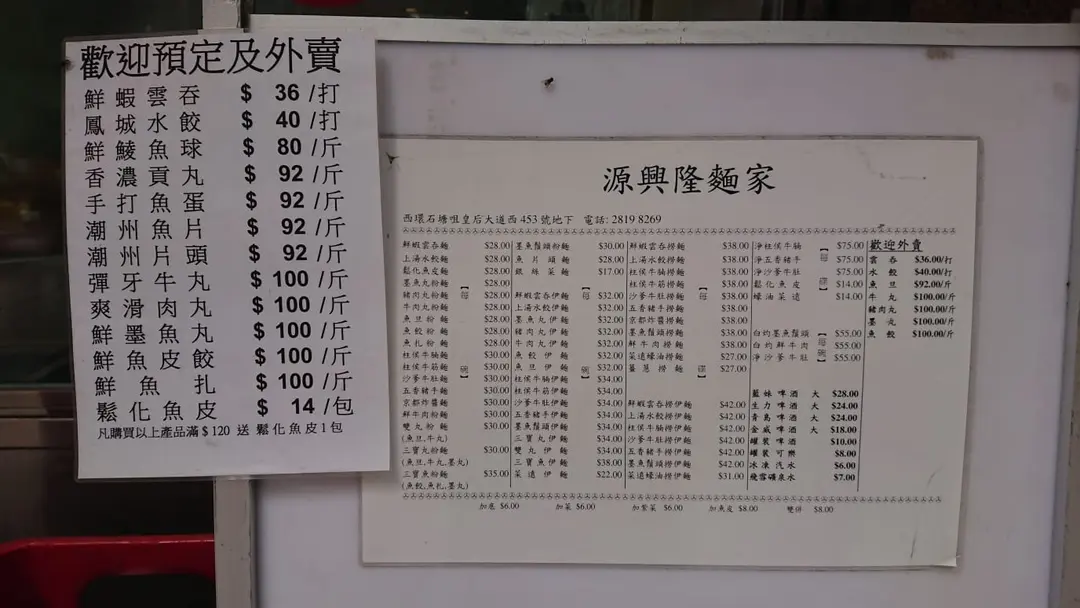 歡迎預定及外賣
鮮蝦雲吞 $ 36 /打
鳳城水餃 $ 40 /打
鮮鯪魚球 $ 80 /斤
香濃貢丸 $ 92 /斤
手打魚蛋 $ 92 /斤
潮州魚片 $ 92 /斤
潮州片頭 $ 92 /斤
彈牙牛丸 $ 100 /斤
爽滑肉丸 $ 100 /斤
鮮墨魚丸 $ 100 /斤
鮮魚皮餃 $ 100 /斤
鮮魚扎 $ 100 /斤
鬆化魚皮 $ 14 /包
凡購買以上產品滿$120 送 鬆化魚皮1包
源興隆麵家
西環石塘咀皇后大道西 453 號地下 電話: 2819 8269
鮮蝦雲吞麵 $28.00
上湯水餃麵 $28.00
鬆化魚皮麵 $28.00
墨魚丸粉麵 $28.00
豬肉丸粉麵 $28.00
牛肉丸粉麵 $28.00
魚旦粉麵 $28.00
魚餃粉麵 $28.00
魚扎粉麵 $28.00
柱侯牛腩麵 $30.00
柱侯牛筋麵 $30.00
沙爹牛肚麵 $30.00
五香豬手麵 $30.00
京都炸醬麵 $30.00
鮮牛肉粉麵 $30.00
雙丸粉麵 $30.00
(魚旦,牛丸)
三寶丸粉麵 $30.00
(魚旦,牛丸,墨丸)
三寶魚粉麵 $35.00
(魚餃,魚扎,墨丸)
【每碗】
墨魚鬚頭粉麵 $30.00
魚片頭麵 $28.00
銀絲菜麵 $17.00
鮮蝦雲吞伊麵 $32.00
上湯水餃伊麵 $32.00
墨魚丸伊麵 $32.00
豬肉丸伊麵 $32.00
牛肉丸伊麵 $32.00
魚餃伊麵 $32.00
魚旦伊麵 $32.00
柱侯牛腩伊麵 $34.00
柱侯牛筋伊麵 $34.00
沙爹牛肚伊麵 $34.00
五香豬手伊麵 $34.00
墨魚鬚頭伊麵 $34.00
三寶丸伊麵 $34.00
雙丸伊麵 $34.00
三寶魚伊麵 $38.00
菜遠伊麵 $22.00
【每碗】
鮮蝦雲吞撈麵 $38.00
上湯水餃撈麵 $38.00
柱侯牛腩撈麵 $38.00
柱侯牛筋撈麵 $38.00
沙爹牛肚撈麵 $38.00
五香豬手撈麵 $38.00
京都炸醬撈麵 $38.00
墨魚鬚頭撈麵 $38.00
鮮牛肉撈麵 $38.00
菜遠蠔油撈麵 $27.00
薑蔥撈麵 $27.00
鮮蝦雲吞撈伊麵 $42.00
上湯水餃撈伊麵 $42.00
柱侯牛腩撈伊麵 $42.00
沙爹牛肚撈伊麵 $42.00
五香豬手撈伊麵 $42.00
墨魚鬚頭撈伊麵 $42.00
菜遠蠔油撈伊麵 $31.00
【每碟】
淨柱侯牛腩 $75.00
淨五香豬手 $75.00
淨沙爹牛肚 $75.00
鬆化魚皮 $14.00
蠔油菜遠 $14.00
【每碟】
白灼墨魚鬚頭 $55.00
白灼鮮牛肉 $55.00
淨沙爹牛肚 $55.00
【每碗】
藍妹啤酒 大 $28.00
生力啤酒 大 $24.00
青島啤酒 大 $24.00
金威啤酒 大 $18.00
罐裝啤酒 $10.00
罐裝可樂 $8.00
冰凍汽水 $6.00
飛雪礦泉水 $7.00
歡迎外賣
雲吞 $36.00/打
水餃 $40.00/打
魚旦 $92.00/斤
牛丸 $100.00/斤
豬肉丸 $100.00/斤
墨丸 $100.00/斤
魚餃 $100.00/斤
加底 $6.00 加菜 $6.00 加紫菜 $6.00 加魚皮 $8.00 雙併 $8.00